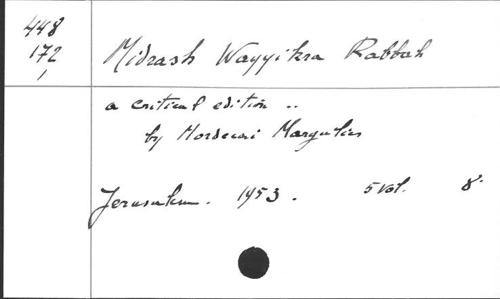 448
172
1
Midrash Wayyikra Rabbah
a critical edition ..
by Mordecai Margulies
Jerusalem. 1953. 5 vol. 8°